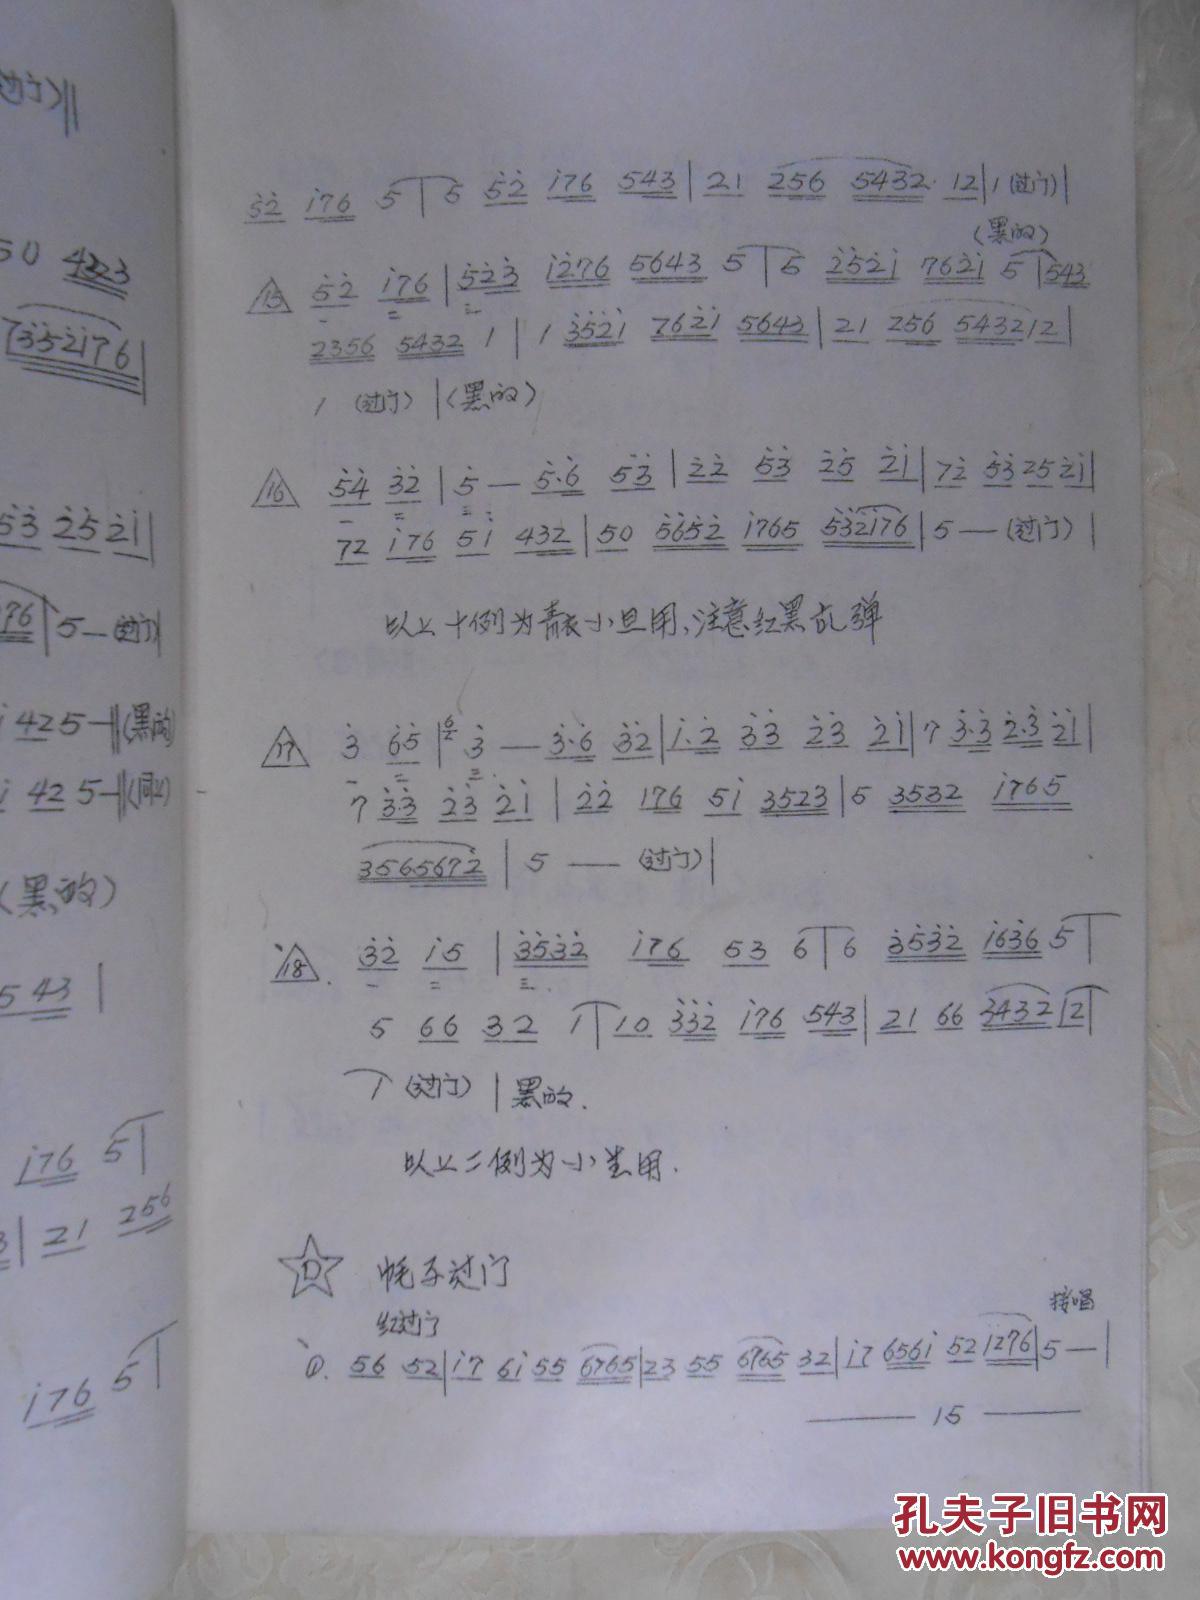 过门)‖
50 4323
7352176|
53 25 21|
76|5—(过门)|
i 425—‖(黑的)
i 42 5—‖(同上)
(黑的)
543 |
i76 5|
3|21 256
i76 5|
52 i76 5|5 52 i76 543|21 256 5432· 12|1(过门)|
(黑的)
15 52 i76|523 i276 5643 5|5 252i 762i 5|543
2356 5432 1|1 352i 762i 5643|21 256 543212|
1 (过门)|(黑的)
16 54 32|5— 5·6 53|22 53 25 2i|72 53 25 2i|
72 i76 5i 432|50 5652 i765 532i76|5—(过门)|
以上十例为青衣小旦用、注意红黑乱弹
17 3 65|6/2 3—3·6 32|i·2 33 23 2i|7 3·3 2·3 2i|
7 3·3 23 2i|22 176 5i 3523|5 3532 i765
3565672|5 — (过门)|
18. 32 i5|3532 i76 53 6|6 3532 i636 5|
5 66 32 1|10 332 i76 543|21 66 3432 12|
1(过门)|黑的.
以上二例为小生用.
D 帽子过门
红过门
接唱
①. 56 52|i7 6i 55 6765|23 55 6765 32|i7 656i 52 1276|5—|
—— 15 ——
孔夫子旧书网
www.kongfz.com